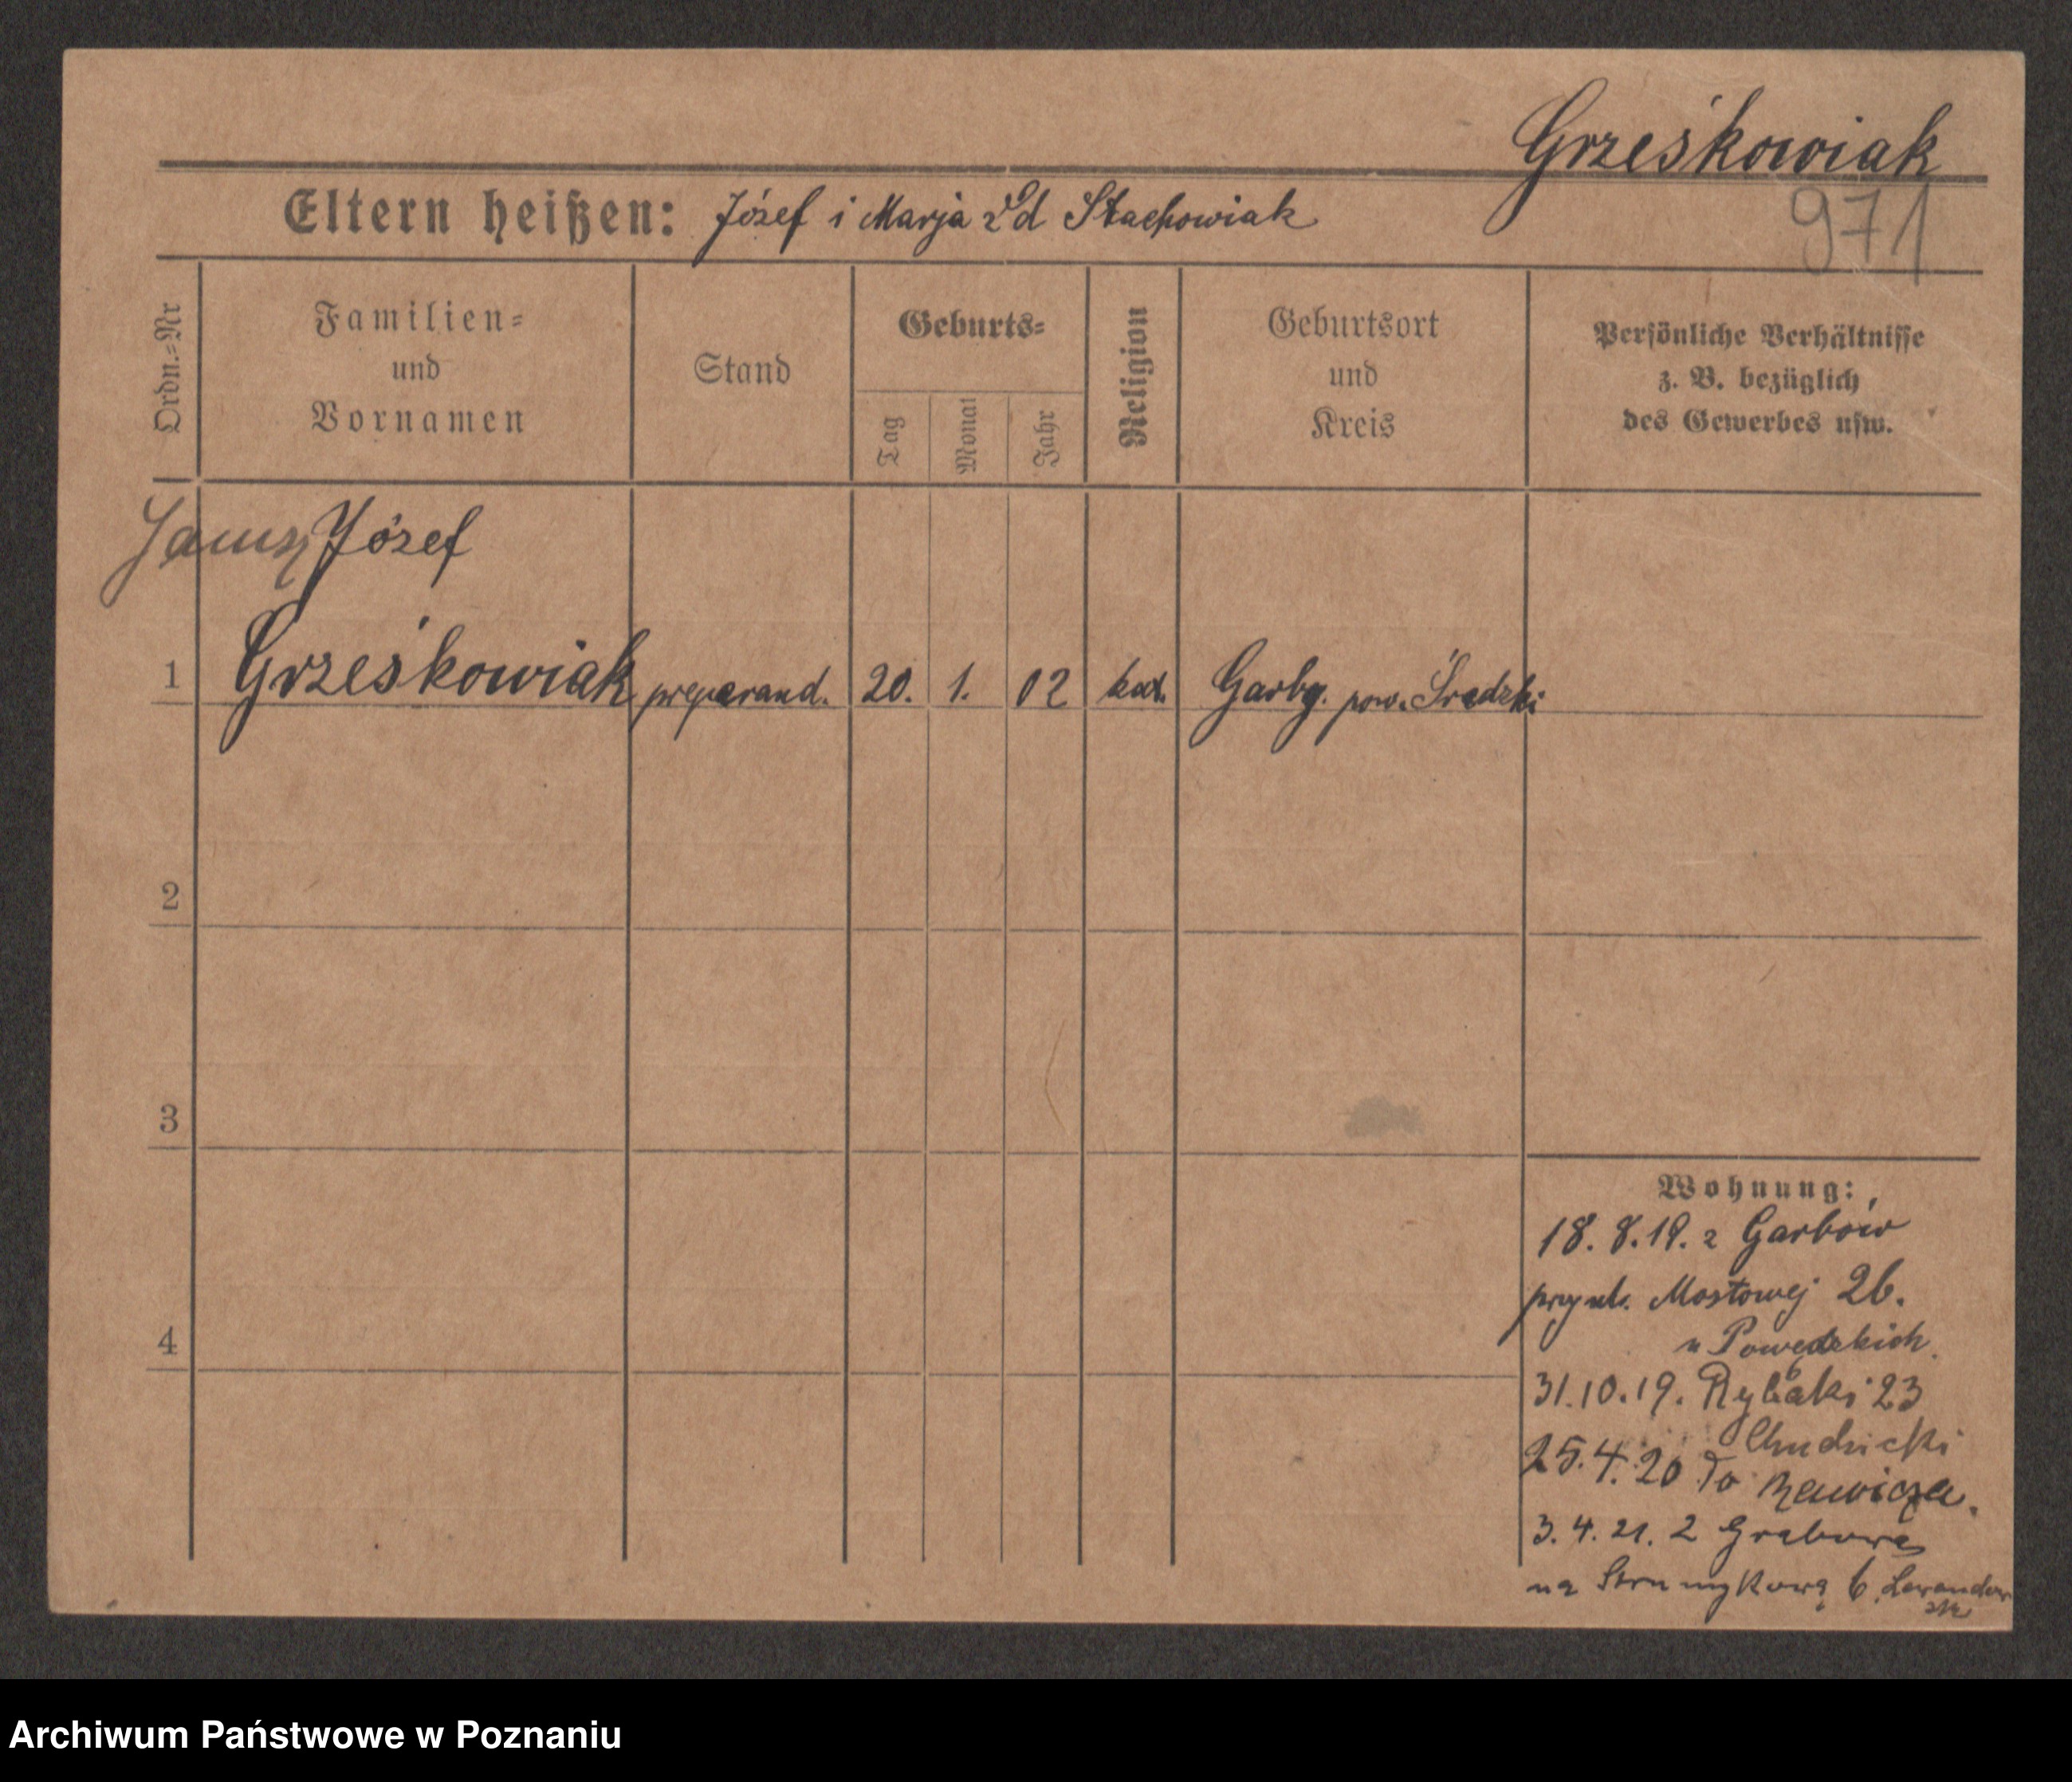 Grześkowiak
Eltern heißen: Józef i Marja zd Stachowiak
971
Ordn.=Nr
Familien=
und
Vornamen
Stand
Geburts=
Tag
Monat
Jahr
Religion
Geburtsort
und
Kreis
Persönliche Verhältnisse
z. B. bezüglich
des Gewerbes usw.
Józef
1 Grześkowiak preparand. 20. 1. 02 kat. Garby. pow. Średzki
2
3
4
Wohnung:
18. 8. 19. z Garbów
przy ul. Mostowej 26.
u Powędzkich
31.10.19. Rybaki 23
Chudzicki
25.4.20 do Rawicza.
3. 4. 21. z Grabowa
na Strumykową 6
Archiwum Państwowe w Poznaniu